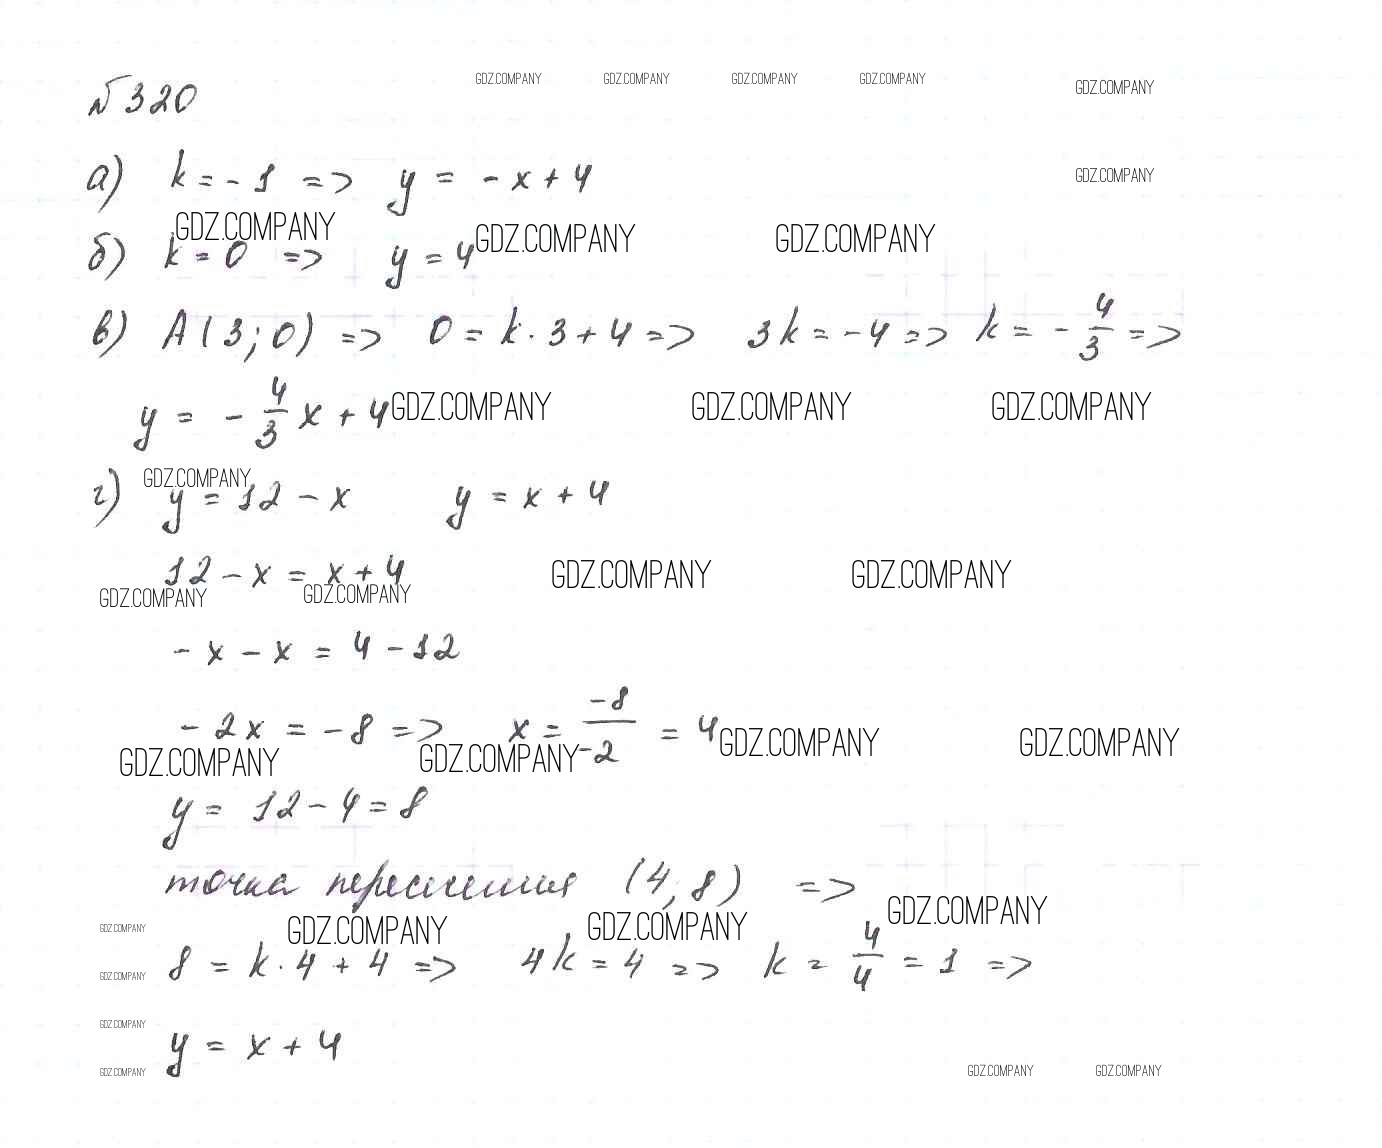 GDZ.COMPANY GDZ.COMPANY GDZ.COMPANY GDZ.COMPANY GDZ.COMPANY
№320
а) k = -1 => y = -x + 4 GDZ.COMPANY
GDZ.COMPANY GDZ.COMPANY GDZ.COMPANY
б) k = 0 => y = 4
в) A(3;0) => 0 = k·3 + 4 => 3k = -4 => k = -4/3 =>
y = -4/3 x + 4 GDZ.COMPANY GDZ.COMPANY GDZ.COMPANY
GDZ.COMPANY
г) y = 12 - x y = x + 4
12 - x = x + 4 GDZ.COMPANY GDZ.COMPANY
GDZ.COMPANY GDZ.COMPANY
-x - x = 4 - 12
-2x = -8 => x = -8/-2 = 4 GDZ.COMPANY GDZ.COMPANY
GDZ.COMPANY GDZ.COMPANY
y = 12 - 4 = 8
точка пересечения (4,8) =>
GDZ.COMPANY GDZ.COMPANY GDZ.COMPANY GDZ.COMPANY
8 = k·4 + 4 => 4k = 4 => k = 4/4 = 1 =>
GDZ.COMPANY
GDZ.COMPANY
y = x + 4
GDZ.COMPANY GDZ.COMPANY GDZ.COMPANY